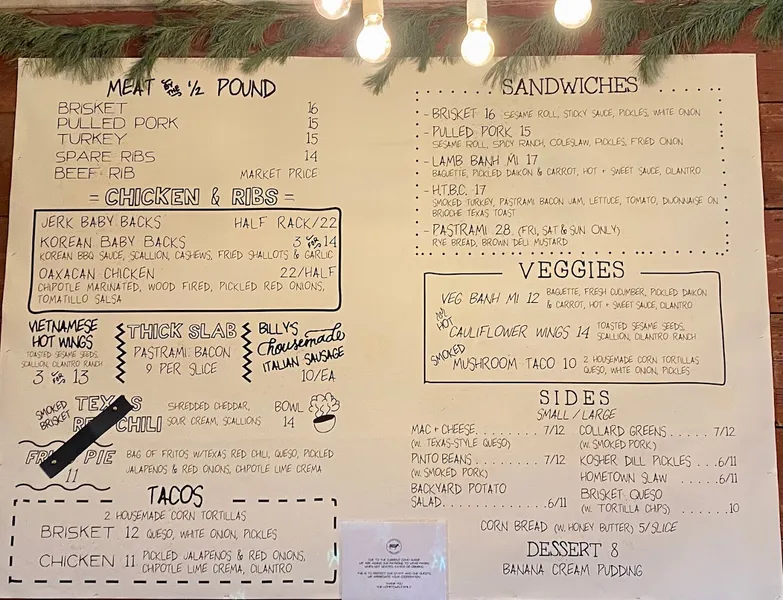 MEAT BY THE 1/2 POUND
BRISKET 16
PULLED PORK 15
TURKEY 15
SPARE RIBS 14
BEEF RIB MARKET PRICE
= CHICKEN & RIBS =
JERK BABY BACKS HALF RACK/22
KOREAN BABY BACKS 3 FOR 14
KOREAN BBQ SAUCE, SCALLION, CASHEWS, FRIED SHALLOTS & GARLIC
OAXACAN CHICKEN 22/HALF
CHIPOTLE MARINATED, WOOD FIRED, PICKLED RED ONIONS,
TOMATILLO SALSA
VIETNAMESE
HOT WINGS
TOASTED SESAME SEEDS,
SCALLION, CILANTRO RANCH
3 FOR 13
THICK SLAB
PASTRAMI BACON
9 PER SLICE
BILLY'S
housemade
ITALIAN SAUSAGE
10/EA
SMOKED
BRISKET
CHILI
SHREDDED CHEDDAR,
SOUR CREAM, SCALLIONS
BOWL
14
PIE
11
BAG OF FRITOS W/TEXAS RED CHILI, QUESO, PICKLED
JALAPENOS & RED ONIONS, CHIPOTLE LIME CREMA
TACOS
2 HOUSEMADE CORN TORTILLAS
BRISKET 12 QUESO, WHITE ONION, PICKLES
CHICKEN 11 PICKLED JALAPENOS & RED ONIONS,
CHIPOTLE LIME CREMA, CILANTRO
SANDWICHES
- BRISKET 16 SESAME ROLL, STICKY SAUCE, PICKLES, WHITE ONION
- PULLED PORK 15
SESAME ROLL, SPICY RANCH, COLESLAW, PICKLES, FRIED ONION
- LAMB BANH MI 17
BAGUETTE, PICKLED DAIKON & CARROT, HOT + SWEET SAUCE, CILANTRO
- H.T.B.C. 17
SMOKED TURKEY, PASTRAMI BACON JAM, LETTUCE, TOMATO, DIJONNAISE ON
BRIOCHE TEXAS TOAST
- PASTRAMI 28 (FRI, SAT & SUN ONLY)
RYE BREAD, BROWN DELI MUSTARD
VEGGIES
VEG BANH MI 12 BAGUETTE, FRESH CUCUMBER, PICKLED DAIKON
& CARROT, HOT + SWEET SAUCE, CILANTRO
HOT CAULIFLOWER WINGS 14 TOASTED SESAME SEEDS,
SCALLION, CILANTRO RANCH
SMOKED MUSHROOM TACO 10 2 HOUSEMADE CORN TORTILLAS
QUESO, WHITE ONION, PICKLES
SIDES
SMALL / LARGE
MAC + CHEESE........7/12
(W. TEXAS-STYLE QUESO)
PINTO BEANS........7/12
(W. SMOKED PORK)
BACKYARD POTATO
SALAD........6/11
COLLARD GREENS......7/12
(W. SMOKED PORK)
KOSHER DILL PICKLES...6/11
HOMETOWN SLAW......6/11
BRISKET QUESO
(W. TORTILLA CHIPS)......10
CORN BREAD (W. HONEY BUTTER) 5/SLICE
DESSERT 8
BANANA CREAM PUDDING